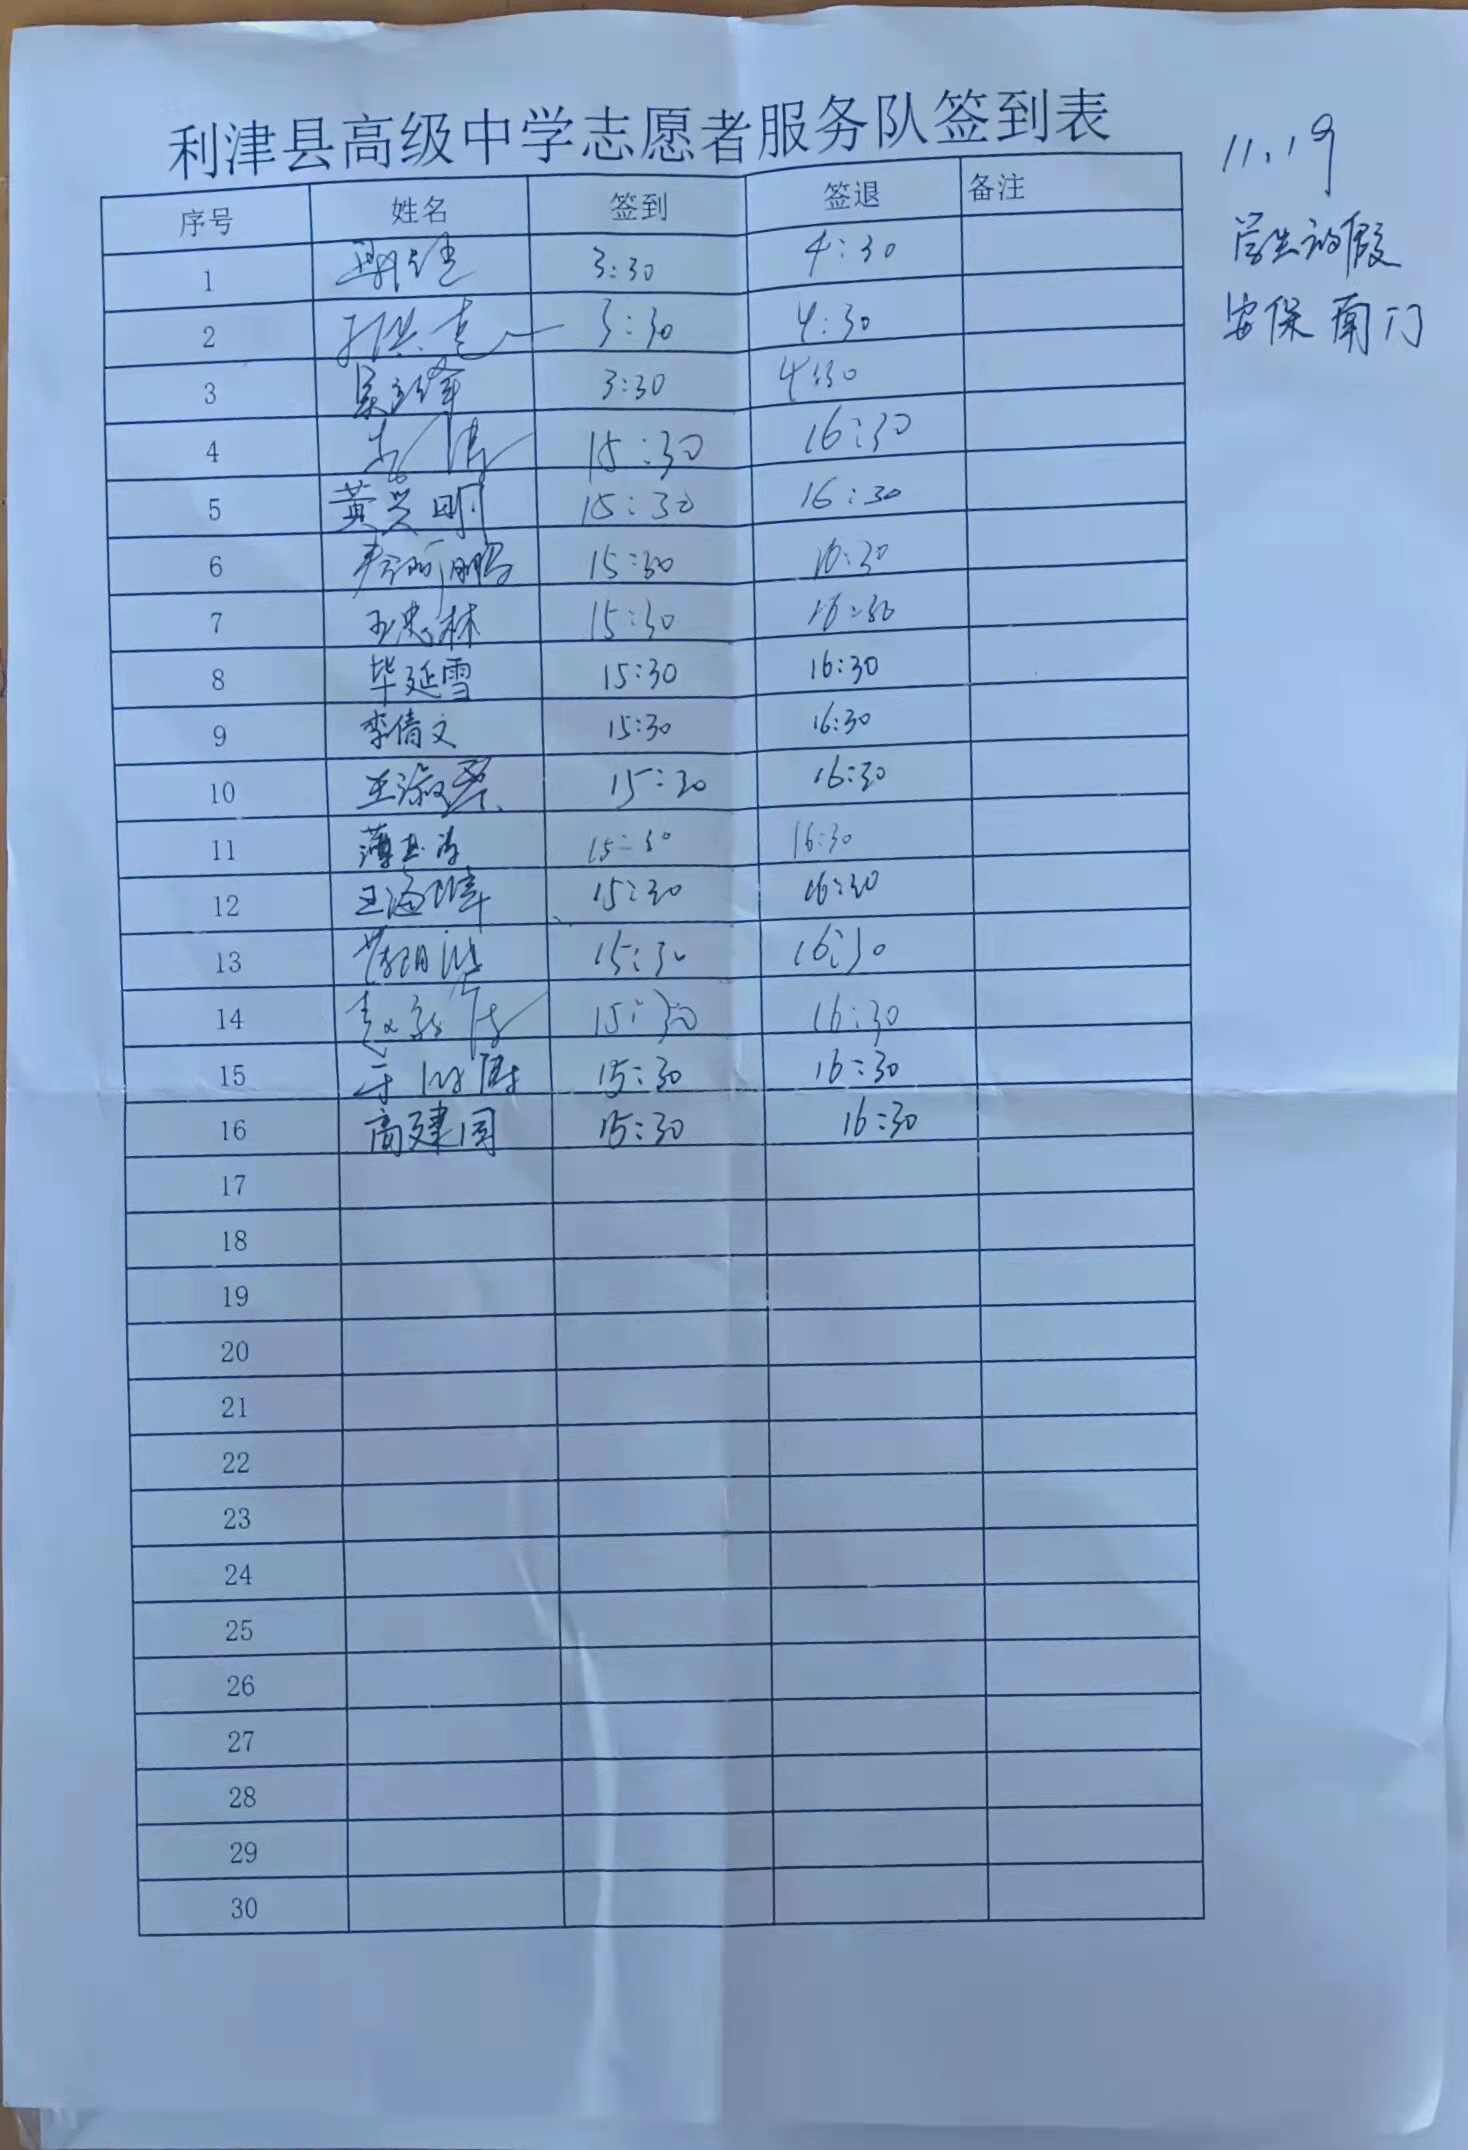 利津县高级中学志愿者服务队签到表
11.19
学生放假
安保南门
序号 姓名 签到 签退 备注
1 3:30 4:30
2 3:30 4:30
3 3:30 4:30
4 15:30 16:30
5 黄兴明 15:30 16:30
6 15:30 16:30
7 王忠林 15:30 16:30
8 毕延雪 15:30 16:30
9 李倩文 15:30 16:30
10 王淑琴 15:30 16:30
11 15:30 16:30
12 王海峰 15:30 16:30
13 15:30 16:30
14 15:30 16:30
15 15:30 16:30
16 高建国 15:30 16:30
17
18
19
20
21
22
23
24
25
26
27
28
29
30